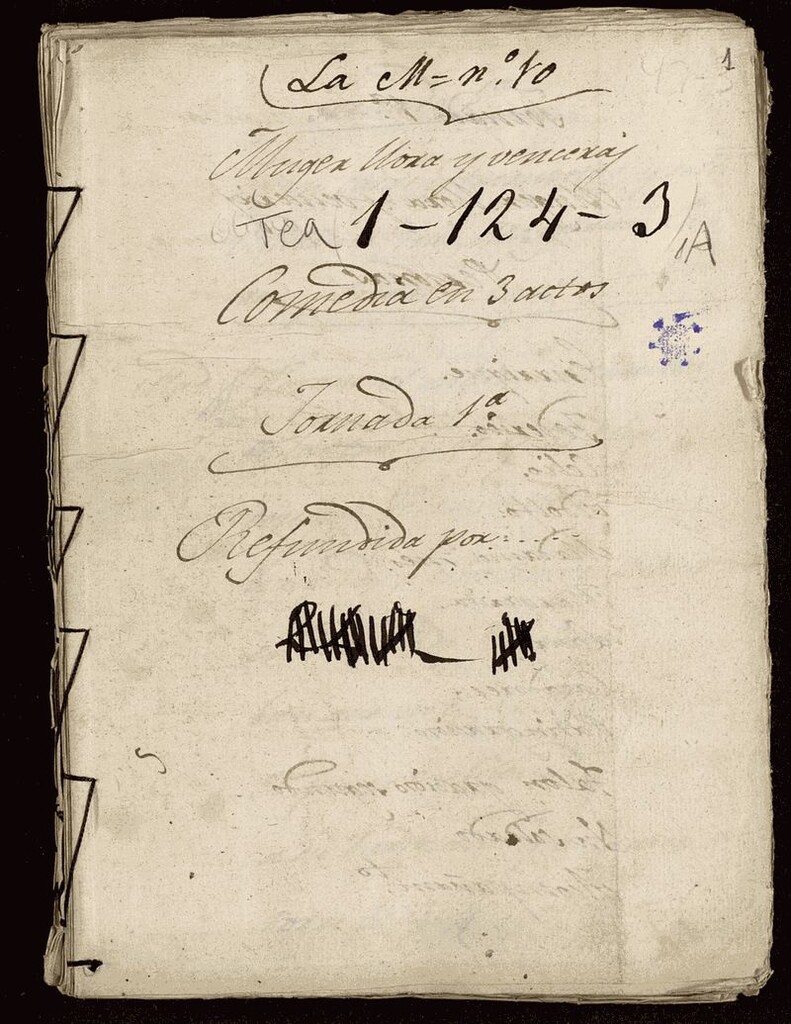 1
La M= nº. 10
Muger llora y vencerás
Tea 1-124-3
/1A
Comedia en 3 actos
Jornada 1ª
Refundida por:....